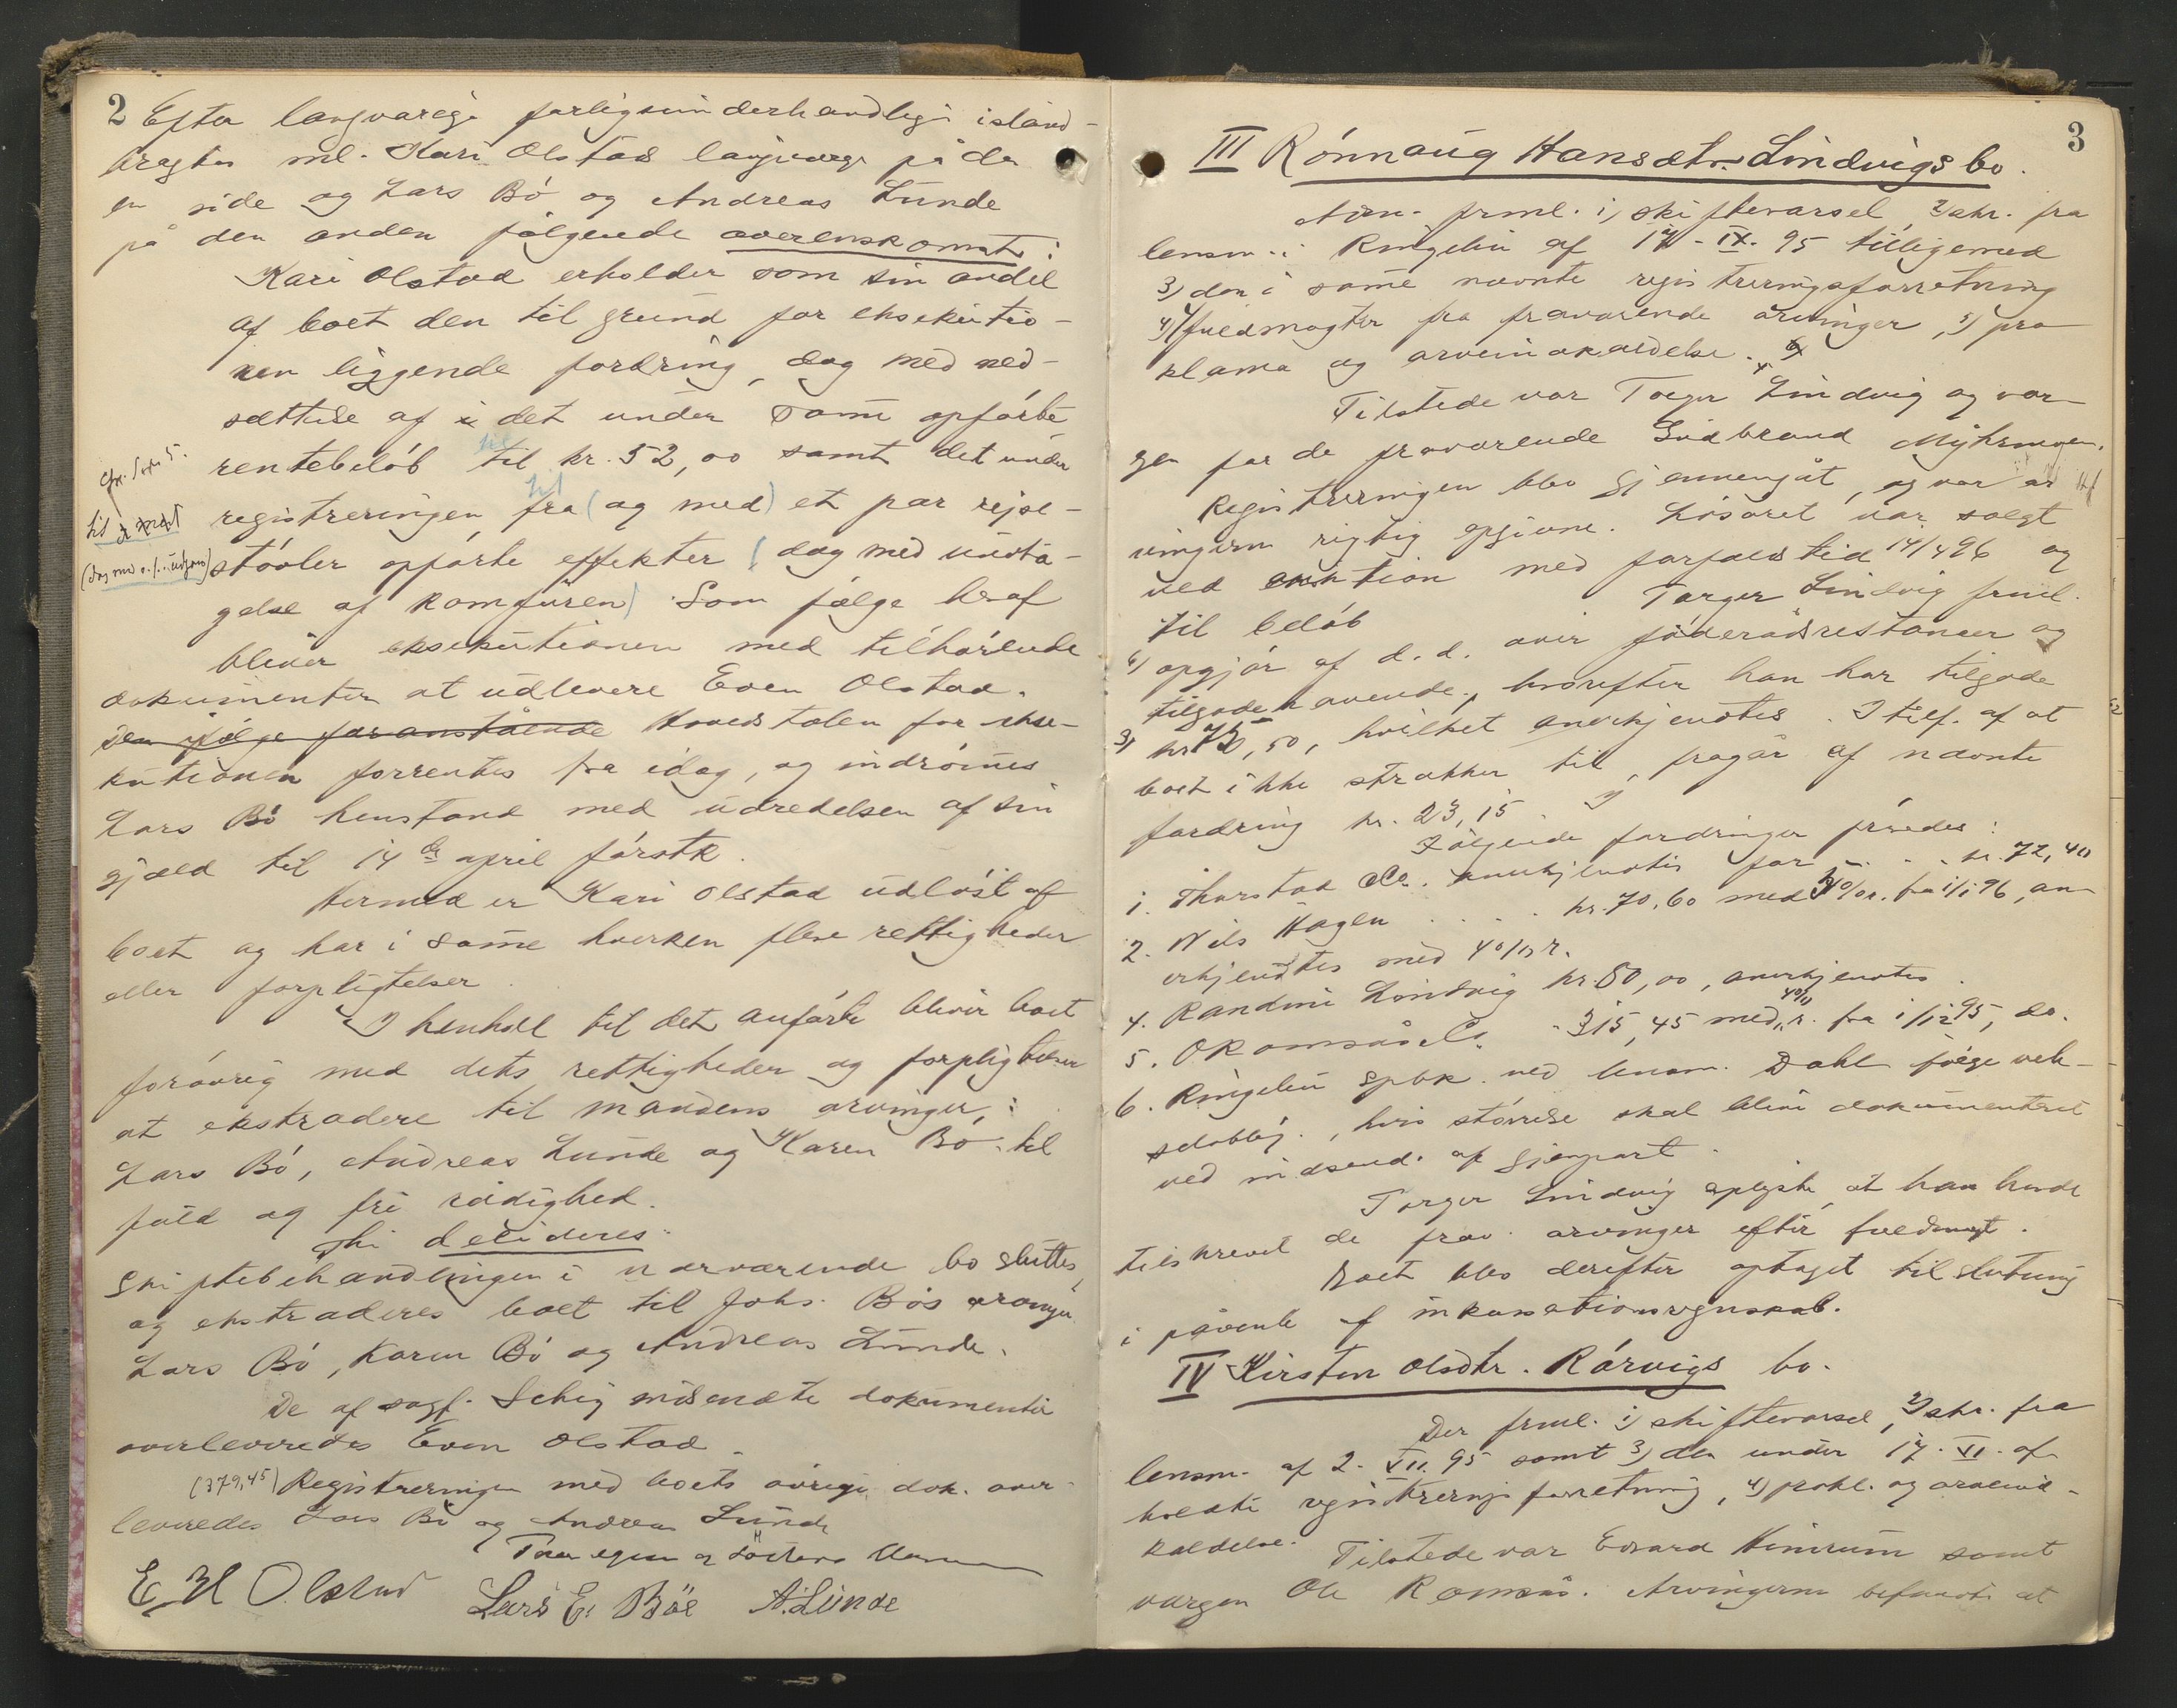 2
Efter langvarige forligsunderhandlinger istand-
bragtes ml. Kari Olstads laugværge på den
en side og Lars Bö og Andreas Lunde
på den anden fölgende overenskomst:
Kari Olstad erholder som sin andel
af boet den til grund for eksekutio-
nen liggende fordring, dog med ned-
sættelse af det under samme opförte
rentebelöb til kr. 52,00 samt det under
registreringen fra (og med) et par rejse-
til
(dog med undtag)
stövler opförte effekter (dog med undta-
gelse af komfuren). Som fölge heraf
bliver eksekutionen med tilhörende
dokumenter at udlevere Even Olstad.
Den ifölge foranstående Hovedstolen for ekse-
kutionen forrentes fra idag, og indrömmes
Lars Bö henstand med udredelsen af sin
gjæld til 14de april förstk.
Hermed er Kari Olstad udlöst af
boet og har i samme hverken flere rettigheder
eller forpligtelser.
I henhold til det anförte bliver boet
forövrig med dets rettigheder og forpligtelser
at ekstradere til mandens arvinger:
Lars Bö, Andreas Lunde og Karen Bö til
fuld og fri rådighed.
Thi decideres:
Skiftebehandlingen i nærværende bo sluttes,
og ekstraderes boet til Johs. Bös arvinger
Lars Bö, Karen Bö og Andreas Lunde.
De af sagf. Schig indsendte dokumenter
overleveredes Even Olstad.
(379,45) Registreringen med boets övrige dok. over-
leveredes Lars Bö og Andreas Lunde
E H Olstad Lars E. Böe A. Lunde
3
III Rönnaug Hansdtr. Lindvigs bo.
Adm. freml. 1) skiftevarsel, 2) skr. fra
lensm. i Ringebu af 17-IX-95 tilligemed
3) den i samme nævnte registreringsforretning
4) fuldmagter fra fraværende arvinger, 5) pro
klama og arveindkaldelse.
Tilstede var Torger Lindvig og vær-
gen for de fraværende Gudbrand Myhrmoen.
Registreringen blev gjennemgåt, og var ar
vingerne rigtig opgivne. Lösöret var solgt
ved auktion med forfaldstid 14/4 96 og
til belöb Torger Lindvig freml.
6) opgjör af d.d. over föderådsrestancer og
tilgodehavende, hvorefter han har tilgode
3) kr. 75,50, hvilket anerkjendtes. I tilf. af at
boet ikke strækker til, fragår af nævnte
fordring kr. 23,15
Fölgende fordringer prövedes:
1. Thorstad & Co. anerkjendtes for . . . kr. 72,40
2. Nils Hagen . . . . kr. 70,60 med 5% r. fra 1/1 96, an-
erkjendtes med 4% r.
4. Randine Lindvig kr. 80,00, anerkjendtes.
5. O Romsås & Co. " 315,45 med 4% r. fra 1/12 95, do.
6. Ringebu spbk. ved lensm. Dahl fölge vek-
selobblig., hvis störrelse skal blive dokumenteret
ved indsend. af gjenpart.
Torger Lindvig oplyste, at han havde
tilskrevet de frav. arvinger efter fuldmagt.
Boet blev derefter optaget til slutning
i påvente af inkassationsregnskab.
IV Kirsten Olsdtr. Rörvigs bo.
Der freml. 1) skiftevarsel, 2) skr. fra
lensm. af 2. XII. 95 samt 3) den under 17. XI. af-
holdte registreringsforretning, 4) prokl. og arveind-
kaldelse. Tilstede var Edvard Himrum samt
værgen Ole Romsås. Arvingerne befandtes at